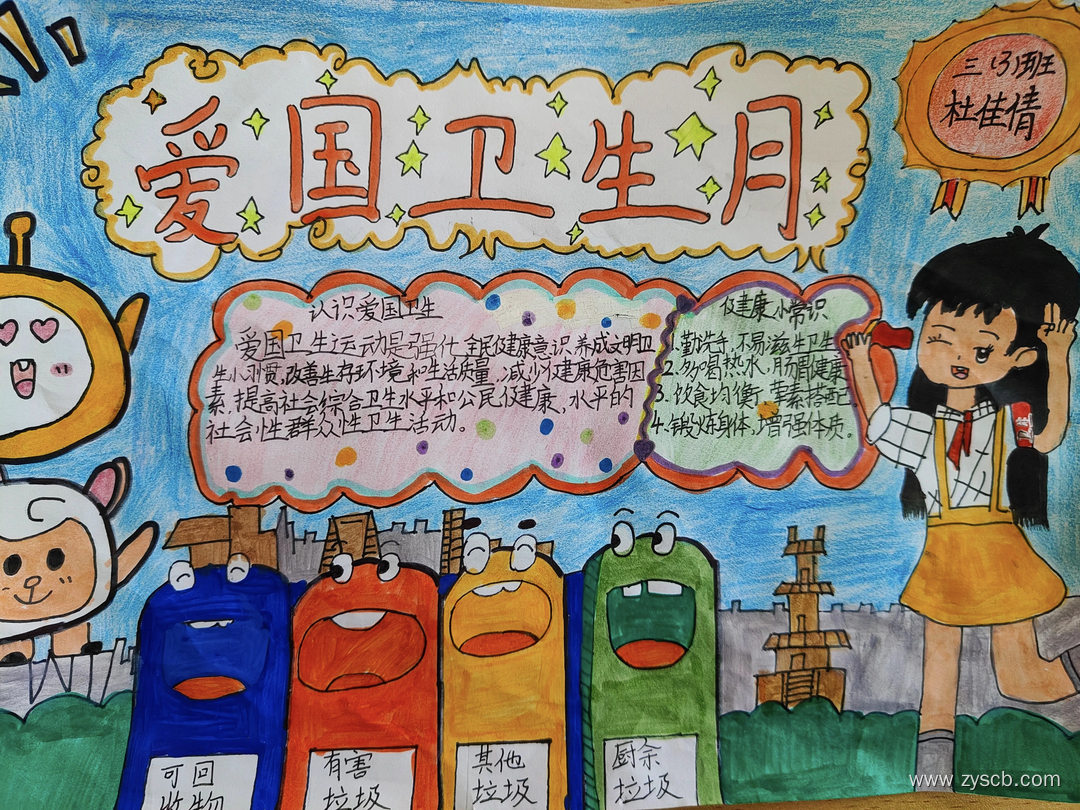 爱国卫生月
三(3)班
杜佳倩
认识爱国卫生
爱国卫生运动是强化全民健康意识,养成文明卫
生小习惯,改善生存环境和生活质量,减少健康危害因
素,提高社会综合卫生水平和公民健康,水平的
社会性群众性卫生活动。
健康小常识
1.勤洗手,不易滋生卫生
2.多喝热水,肠胃健康
3.饮食均衡,荤素搭配
4.锻炼身体,增强体质。
可回
收物
有害
垃圾
其他
垃圾
厨余
垃圾
www.zyscb.com